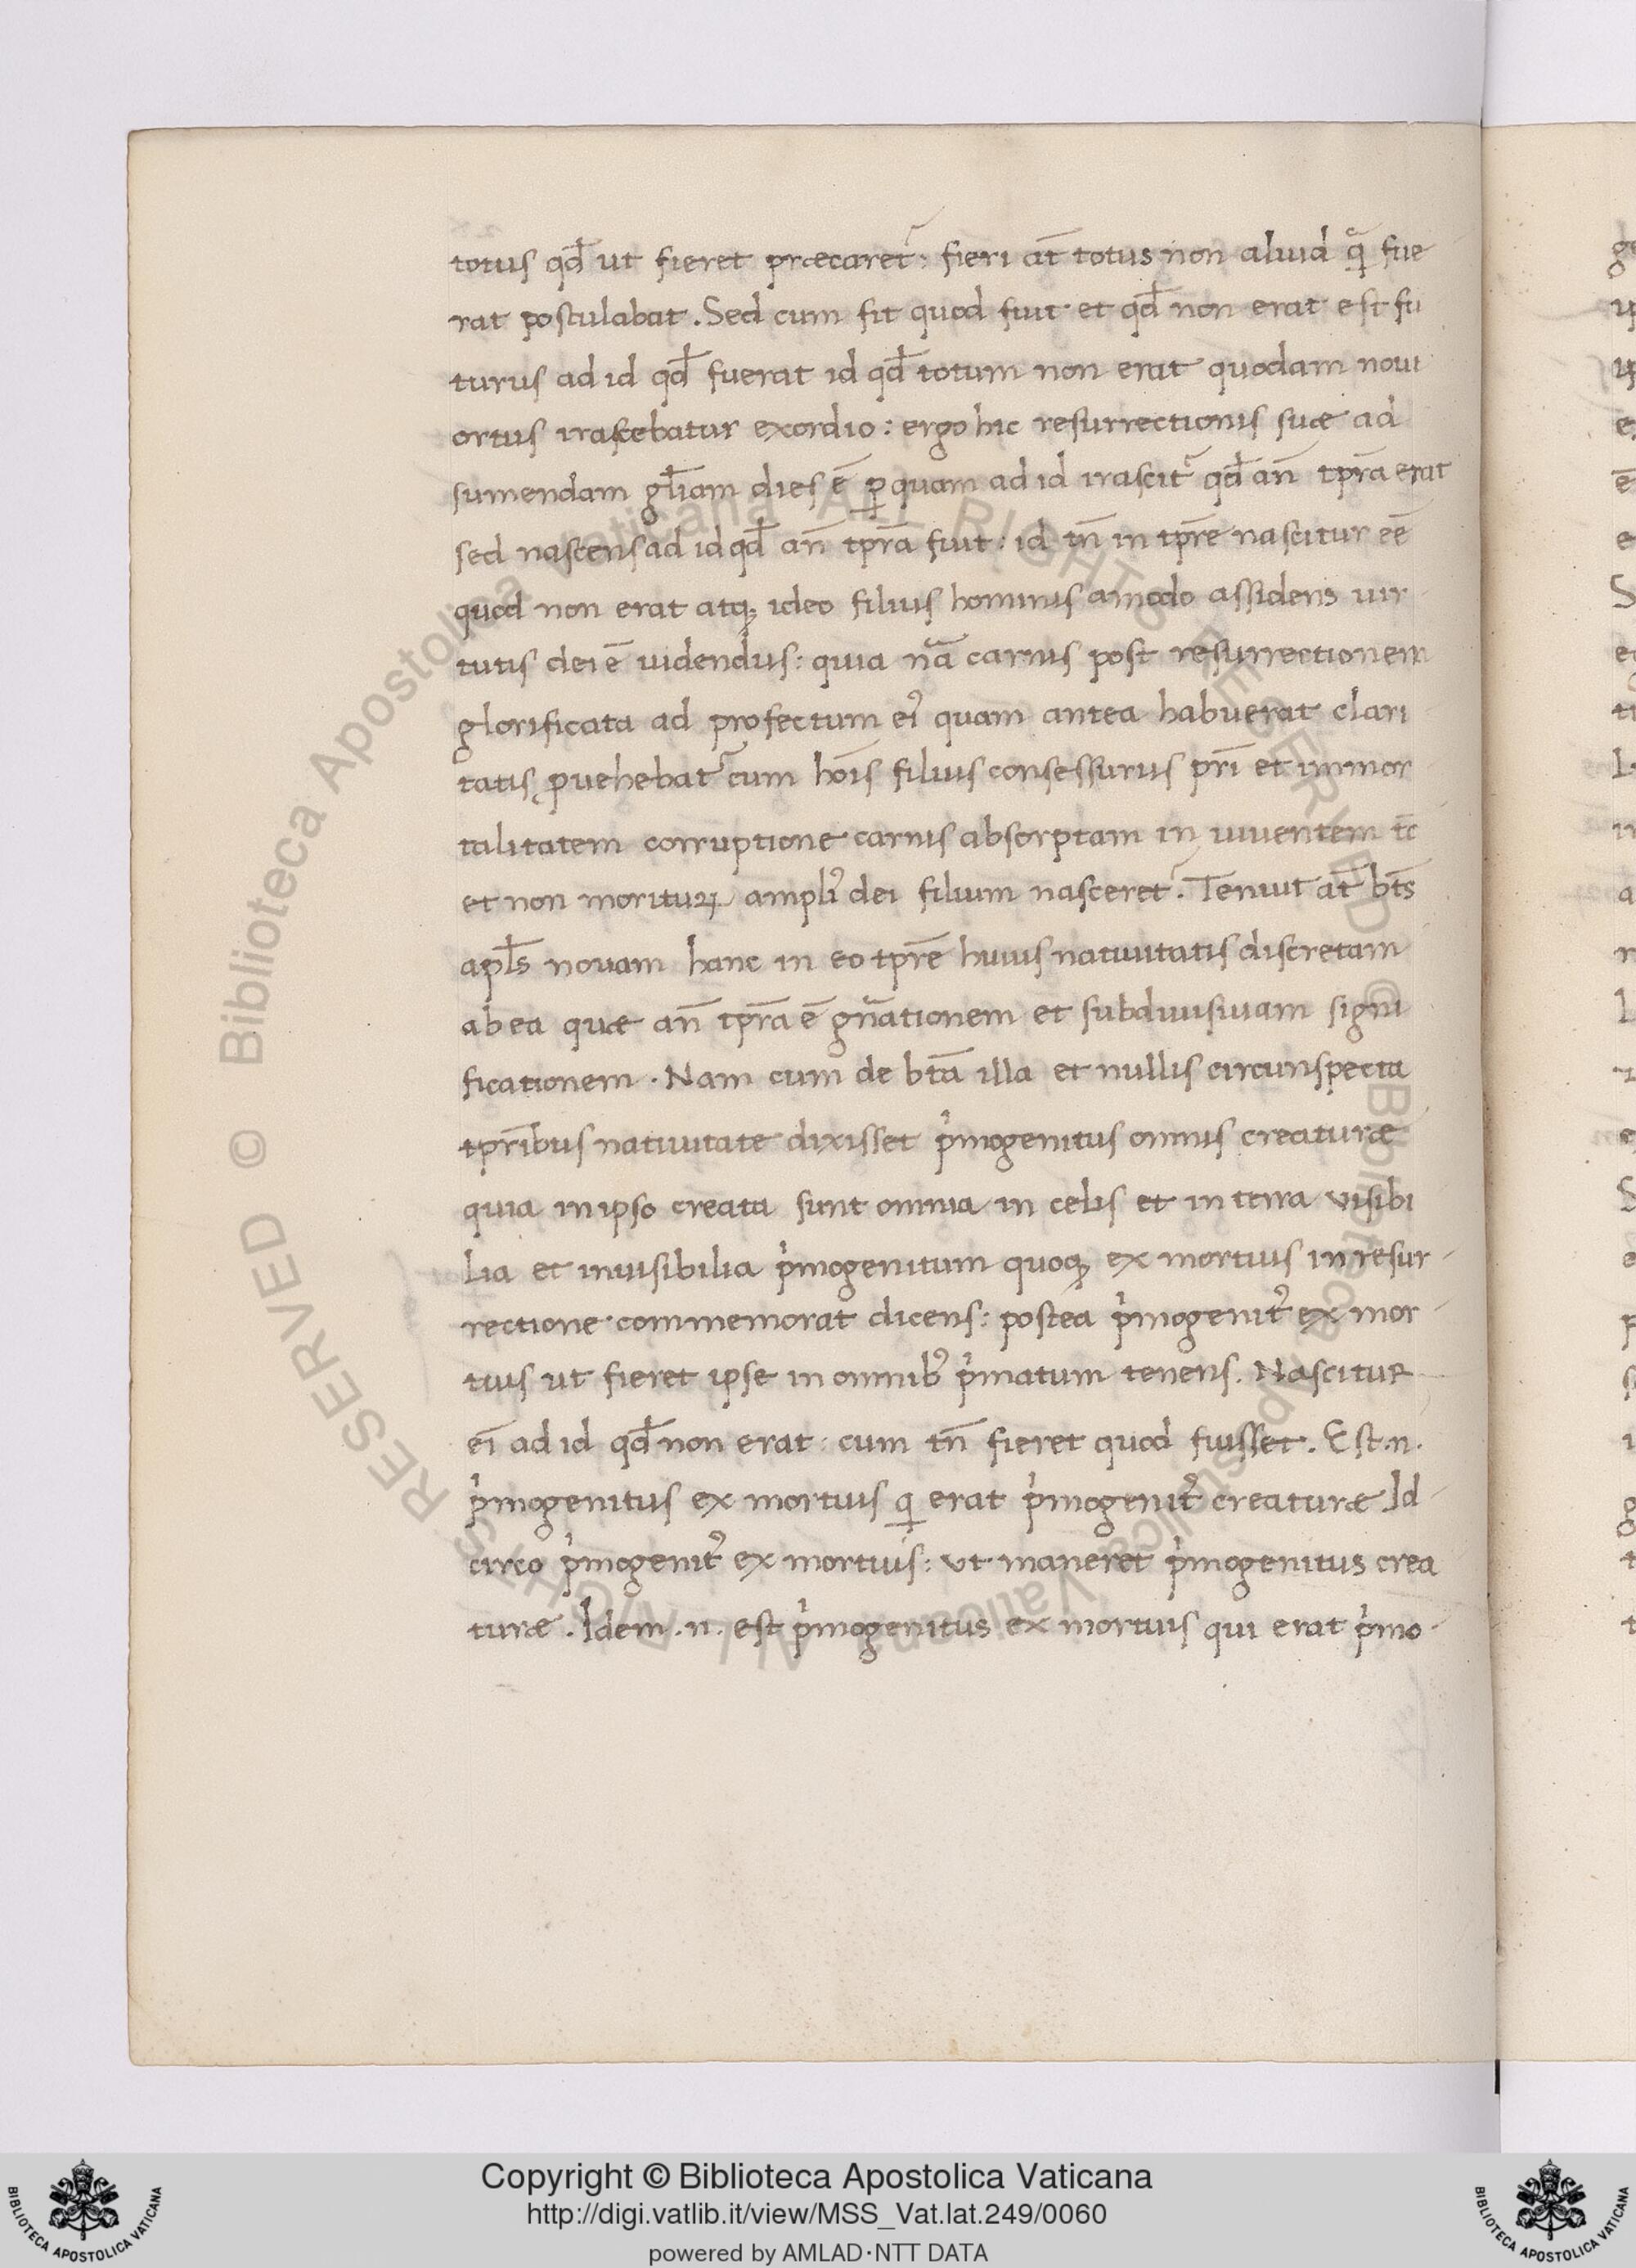 totus qđ ut fieret præcaret᷑: fieri at̄ totus non aliud q̃ fue
rat postulabat. Sed cum fit quod fuit et qđ non erat est fu
turus ad id qđ fuerat id qđ totum non erat quodam noui
ortus irascebatur exordio: ergo hic resurrectionis suæ ad
sumendam gl̄iam dies ē ꝑ quam ad id irascit᷑ qđ an̄ tp̄ra erat
sed nascens ad id qđ an̄ tp̄ra fuit: id tn̄ in tp̄re nascitur eē
quod non erat atqꝫ ideo filius hominis amodo assidens uir
tutis dei ē uidendus: quia nã carnis post resurrectionem
glorificata ad profectum eiꝰ quam antea habuerat clari
tatis ꝓuehebat᷑ cum hoīs filius consessurus pr̄i et immor
talitatem corruptione carnis absorptam in uiuentem tc̄
et non morituꝝ ampliꝰ dei filium nasceret᷑. Tenuit at̄ bt̄s
apl̄s nouam hanc in eo tp̄re huius natiuitatis discretam
ab ea quæ an̄ tp̄ra ē gn̄ationem et subdiuisiuam signi
ficationem. Nam cum de bt̄a illa et nullis circunspecta
tp̄ribus natiuitate dixisset p̍mogenitus omnis creaturæ
quia in ipso creata sunt omnia in celis et in terra visibi
lia et inuisibilia p̍mogenitum quoqꝫ ex mortuis in resur
rectione commemorat dicens: postea p̍mogenitꝰ ex mor
tuis ut fieret ipse in omnibꝰ p̍matum tenens. Nascitur
ei ad id qđ non erat: cum tn̄ fieret quod fuisset. Est .n.
p̍mogenitus ex mortuis qi erat p̍mogenitꝰ creaturæ Id
circo p̍mogenitꝰ ex mortuis: ut maneret p̍mogenitus crea
turæ. Idem .n. est p̍mogenitus ex mortuis qui erat p̍mo
Copyright © Biblioteca Apostolica Vaticana
http://digi.vatlib.it/view/MSS_Vat.lat.249/0060
powered by AMLAD·NTT DATA
BIBLIOTECA APOSTOLICA VATICANA
BIBLIOTECA APOSTOLICA VATICANA
© Biblioteca Apostolica Vaticana ALL RIGHTS RESERVED © Biblioteca Apostolica Vaticana ALL RIGHTS RESERVED